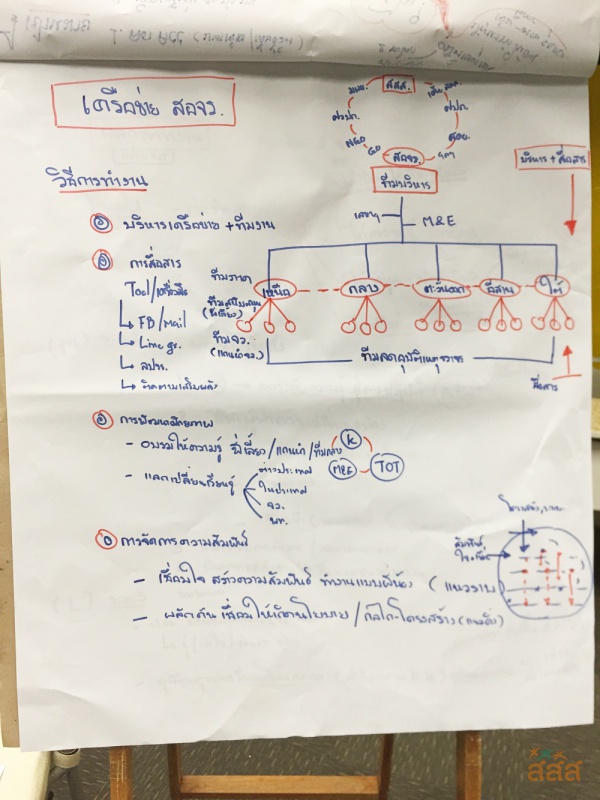 เครือข่าย สอจร.
สสส.
ศวปถ.
NGO
GO
สอจร.
ทีมบริหาร
บริหาร + สื่อสาร
วิธีการทำงาน
เลขาฯ
M&E
บริหารเครือข่าย + ทีมงาน
การสื่อสาร
Tool/เครื่องมือ
FB/Mail
Line gr.
สปจร.
ทีมภาค
(พี่เลี้ยง)
ทีมจว.
(แกนนำจว.)
เหนือ
กลาง
ตะวันออก
อีสาน
ใต้
ทีมลดอุบัติเหตุจราจร
สื่อสาร
การพัฒนาศักยภาพ
- อบรมให้ความรู้ พี่เลี้ยง/แกนนำ/ทีมกลาง
K
M&E
TOT
- แลกเปลี่ยนเรียนรู้
ต่างประเทศ
ในประเทศ
จว.
พท.
การจัดการความสัมพันธ์
- เชื่อมใจ สร้างความสัมพันธ์ ทำงานแบบพี่น้อง (แนวราบ)
- ผลักดัน เชื่อมให้เกิดนโยบาย/กลไก-โครงสร้าง (แนวดิ่ง)
สสส